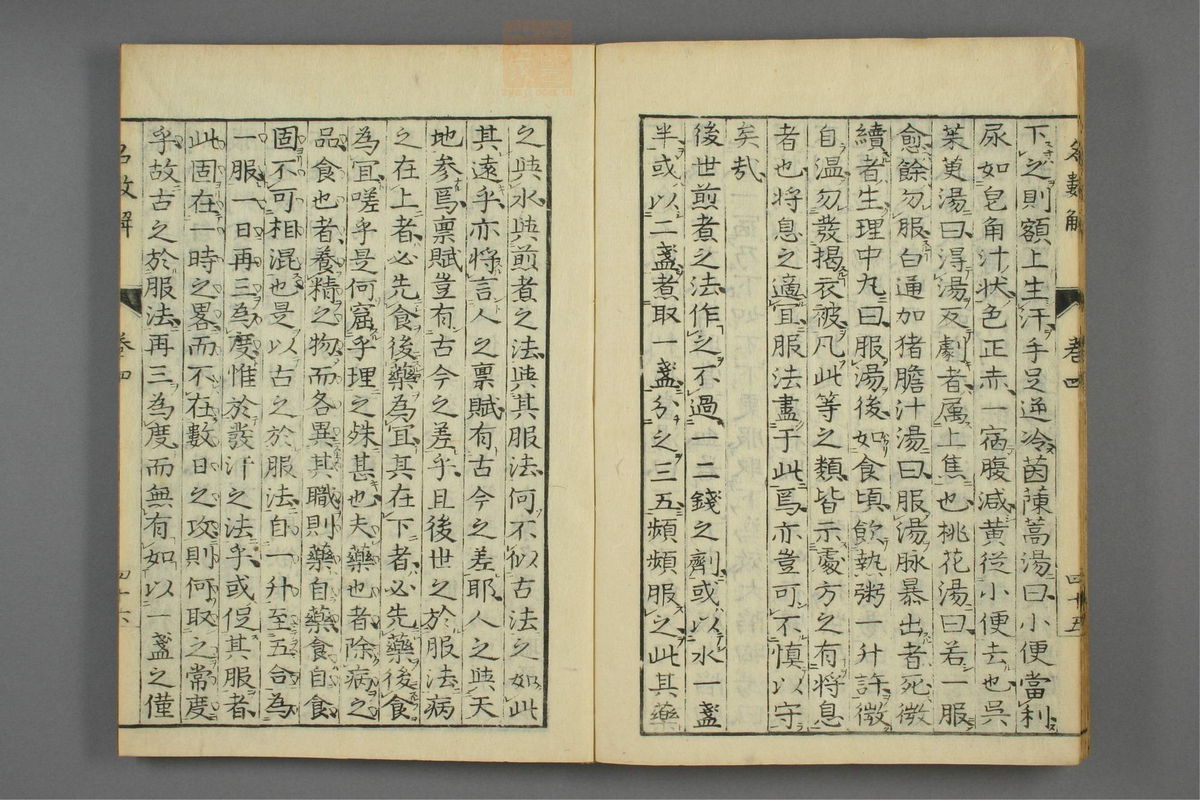 下之則額上生汗手足逆冷茵蔯蒿湯曰小便當利
尿如皂角汁狀色正赤一宿腹減黃從小便去也吳
茱萸湯曰得湯反劇者属上焦也桃花湯曰若一服
愈餘勿服白通加猪膽汁湯曰服湯脉暴出者死微
續者生理中丸曰服湯後如食頃飲熱粥一升許微
自温勿發揭衣被凡此等之類皆示處方之有將息
者也将息之適宜服法盡于此焉亦豈可不慎以守
矣哉
後世煎煮之法作之不過一二錢之劑或以水一盞
半或以二盞煮取一盞分之三五頻頻服之此其藥
之與水與煎煮之法與其服法何不似古法之如此
其遠乎亦将言人之禀賦有古今之差耶人之與天
地参焉禀賦豈有古今之差乎且後世之於服法病
之在上者必先食後藥為宜其在下者必先藥後食
為宜嗟乎是何窟乎理之殊甚也夫藥也者除病之
品食也者養精之物而各異其職則藥自藥食自食
固不可相混也是以古之於服法自一升至五合為
一服一日再三為度惟於發汗之法乎或促其服者
此固在一時之畧而不在數日之攻則何取之常度
乎故古之於服法再三為度而無有如以一盞之僅
名數解
卷四
四十五
名數解
卷四
四十六